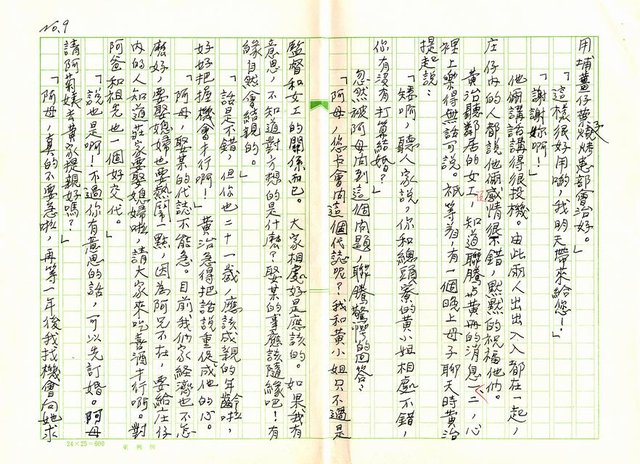 No. 9
用埔薑仔燻烤患部會治好。
「這樣很好用喲，我明天帶來給您！」
「謝謝妳啊！」
他倆講話講得很投機。由此兩人出出入入都在一起，
庄仔內的人都說他倆感情很不錯，默默的祝福他們。
黃治聽鄰居的女工，知道聯騰與黃冊的消息一二，心
裡上樂得無話可說。祇等著，有一個晚上母子聊天時黃治
提起說：
「矮啊，聽人家說，你和總頭寮的黃小姐相處不錯，
你有沒有打算結婚？」
忽然被阿母問到這個問題，聯騰驚愕的回答：
「阿母，您卡會問這個代誌呢？我和黃小姐只不過是
監督和女工的關係而已。大家相處好是應該的。如果我有
意思，不知道對方想的是什麼？娶某的事應該隨緣吧！有
緣自然會結親的。」
「話是不錯，但你也二十一歲，應該成親的年齡啦，
好好把握機會才行啊！」黃治急得把話說重促成他的心。
「阿母，娶某的代誌不能急。目前我們家經濟也不怎
麼好，要娶媳婦也要熱鬧一點，因為阿兄不在，要給庄仔
內的人知道莊家要娶媳婦啦，請大家來吃喜酒才行啊。對
阿爸和祖先也一個好交代。」
「說也是啊！不過你有意思的話，可以先訂婚。阿母
請阿菊姨去黃家提親好嗎？」
「阿母，真的不要急啦，再等一年後我找機會向她求
24×25=600